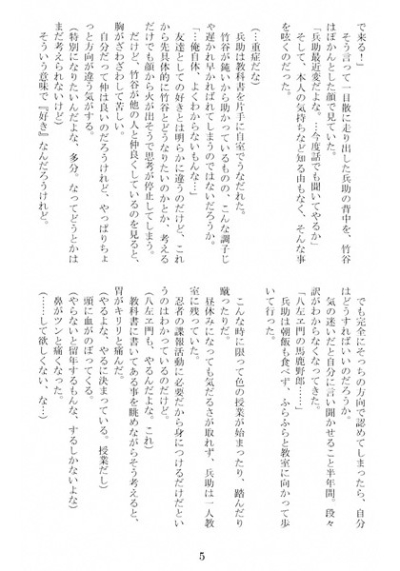 で来る！」
　そう言って一目散に走り出した兵助の背中を、竹谷
はぽかんとした顔で見ていた。
「兵助最近変だよな。…今度話でも聞いてやるか」
　そして、本人の気持ちなど知る由もなく、そんな事
を呟くのだった。
（…重症だな）
　兵助は教科書を片手に自室でうなだれた。
　竹谷が鈍いから助かっているものの、こんな調子じ
ゃ遅かれ早かればれてしまうのではないだろうか。
「…俺自体、よくわからないもんな…」
　友達としての好きとは明らかに違うのだけど、これ
から先具体的に竹谷とどうなりたいのかとか、考える
だけでも顔から火が出そうで思考が停止してしまう。
　だけど、竹谷が他の人と仲良くしているのを見ると、
胸がざわざわして苦しい。
　自分だって仲は良いのだろうけれど、やっぱりちょ
っと方向が違う気がする。
（特別になりたいんだよな、多分。なってどうとかは
まだ考えられないけど）
　そういう意味で『好き』なんだろうけれど。
　でも完全にそっちの方向で認めてしまったら、自分
はどうすればいいのだろうか。
　気の迷いだと自分に言い聞かせること半年間。段々
訳がわからなくなってきた。
「八左ヱ門の馬鹿野郎……」
　兵助は朝飯も食べず、ふらふらと教室に向かって歩
いて行った。
　こんな時に限って色の授業が始まったり、踏んだり
蹴ったりだ。
　昼休みになっても気だるさが取れず、兵助は一人教
室に残っていた。
　忍者の諜報活動に必要だから身につけるだけだとい
うのはわかっているのだけど。
（八左ヱ門も、やるんだよな。これ）
　教科書に書いてある事を眺めながらそう考えると、
胃がキリリと痛んだ。
（やるよな、やるに決まっている。授業だし）
　頭に血がのぼってくる。
（やらないと留年するもんな、するしかないよな）
　鼻がツンと痛くなった。
（……して欲しくない、な…）
5